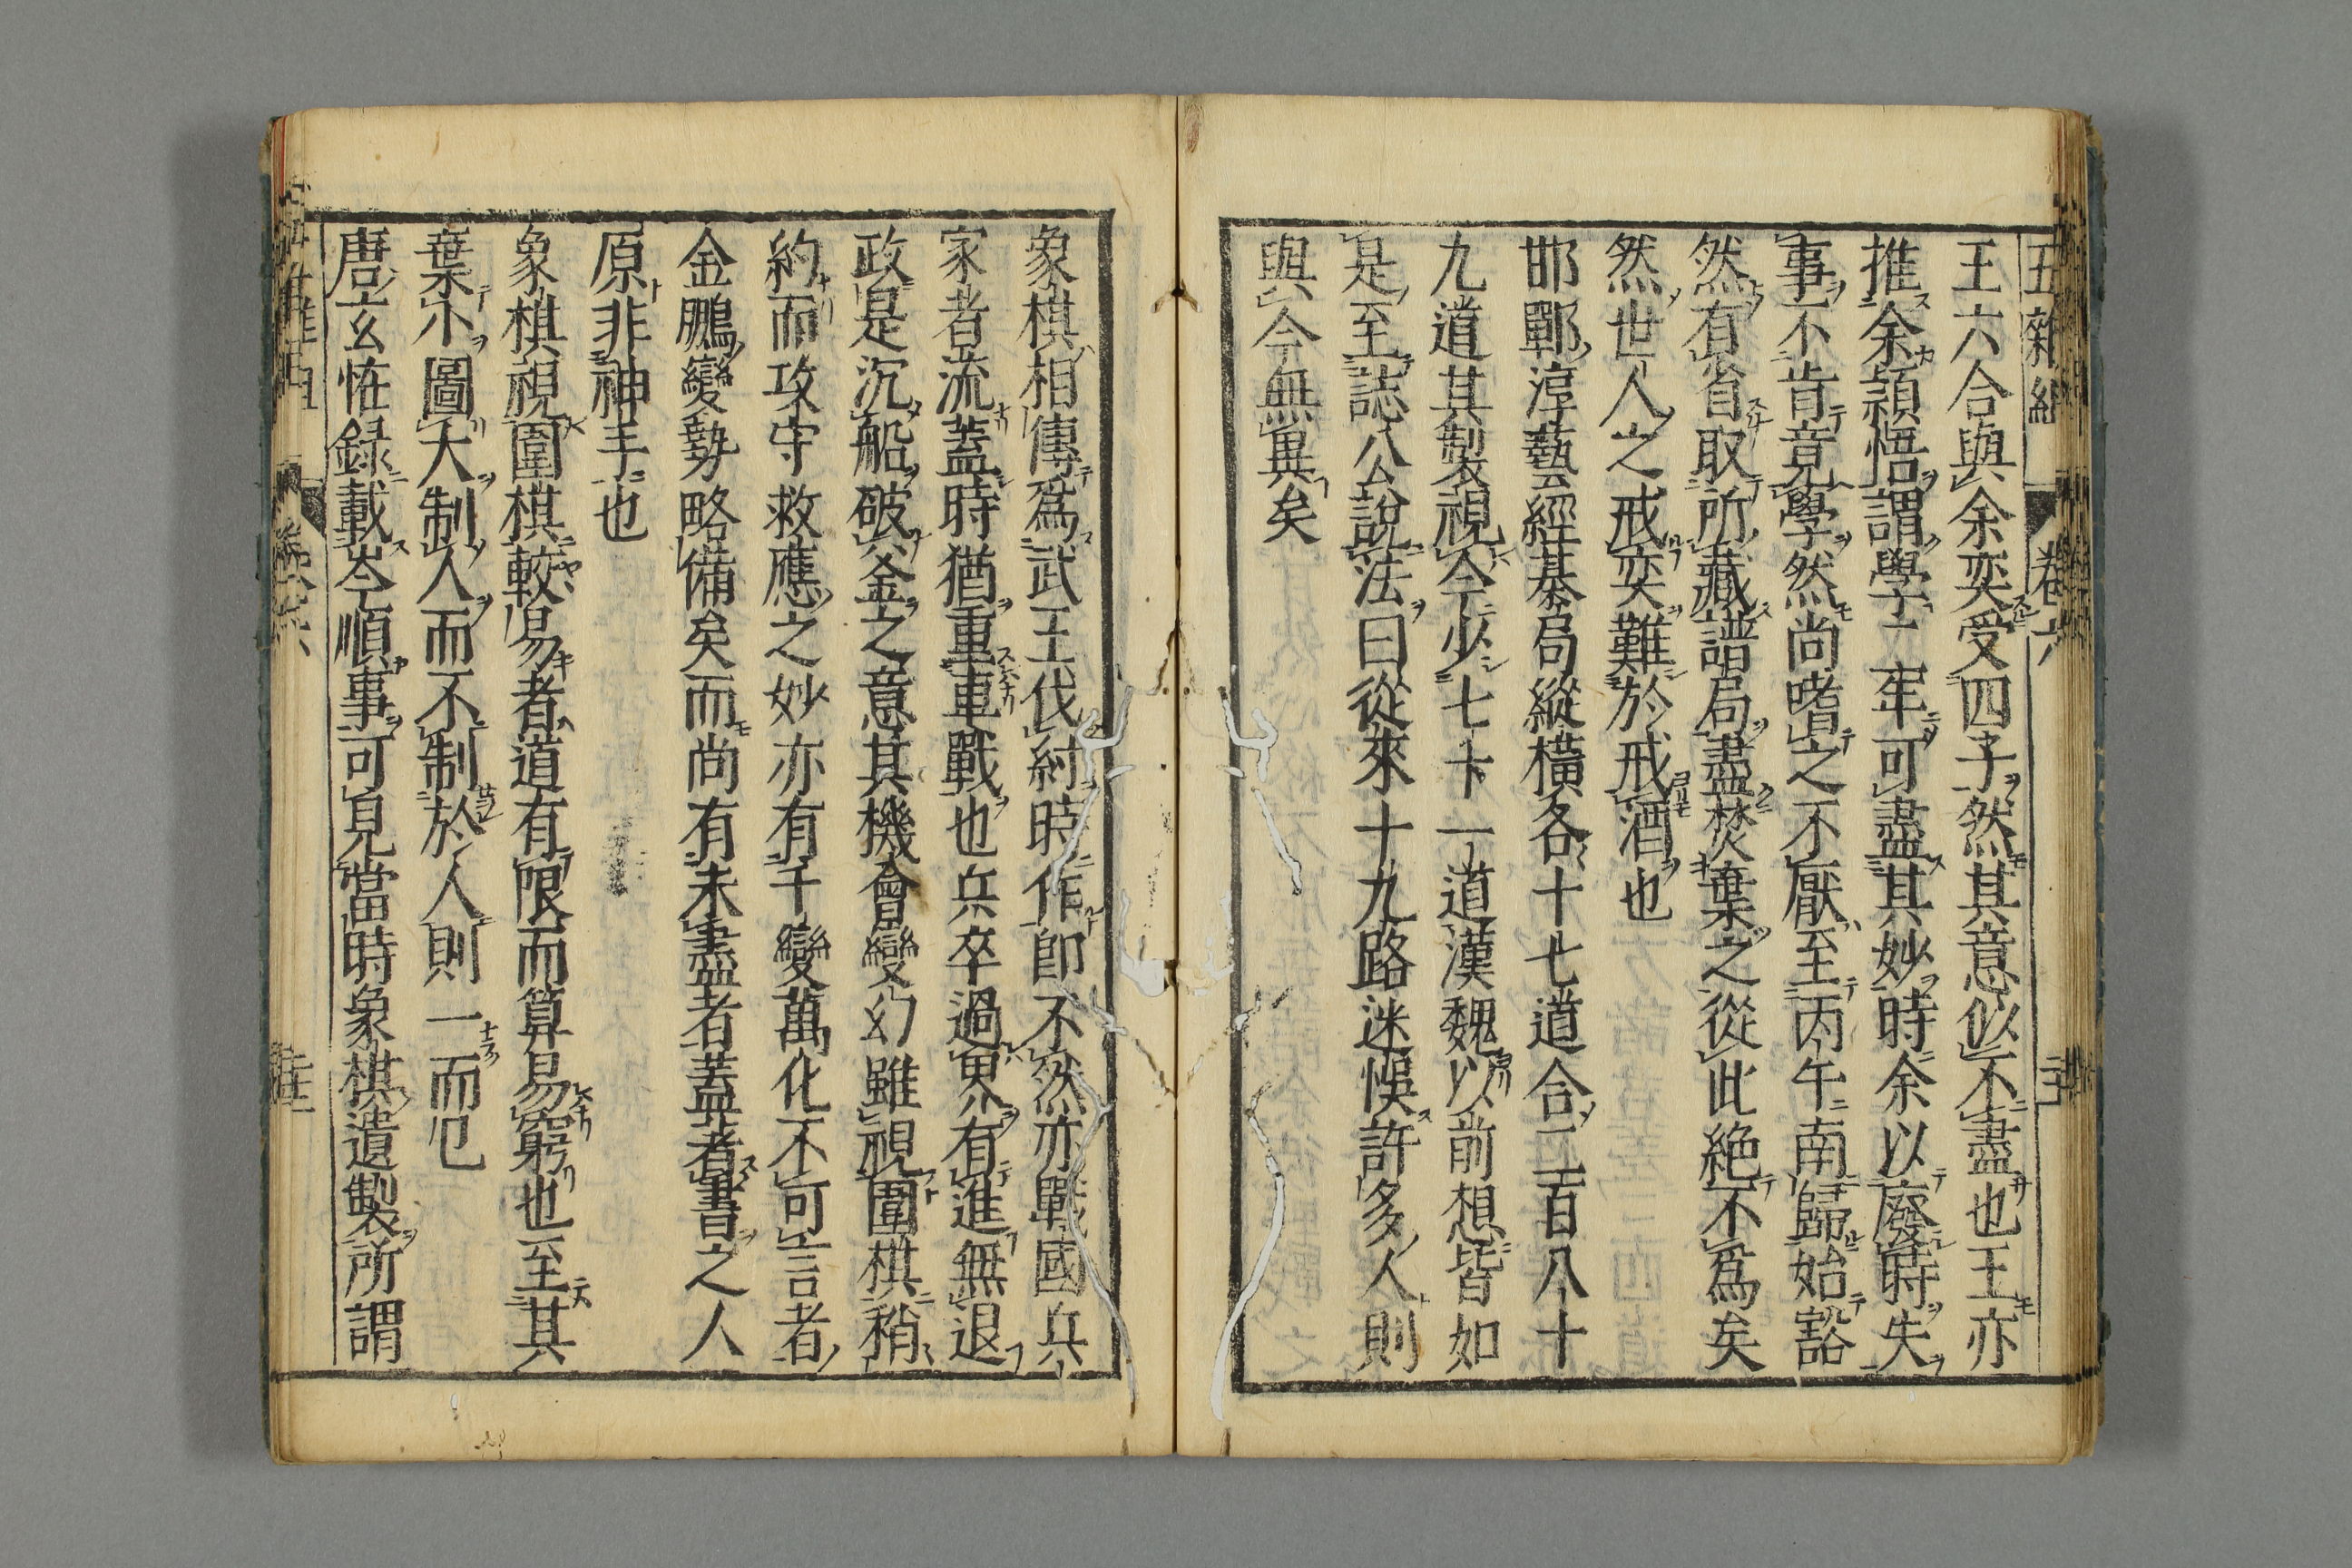 五雜組 卷六
王六合與余奕受四子然其意似不盡也王亦
推余頴悟謂學二年可盡其妙時余以廢時失
事不肯竟學然尚嗜之不厭至丙午南歸始豁
然有省取所藏譜局盡焚棄之從此絶不爲矣
然世人之戒奕難於戒酒也
邯鄲淳藝經棊局縱横各十七道合二百八十
九道其製視今少七十一道漢魏以前想皆如
是至誌公說法曰從來十九路迷悞許多人則
與今無異矣
象棋相傳爲武王伐紂時作即不然亦戰國兵
家者流蓋時猶重車戰也兵卒過界有進無退
政是沉船破釜之意其機會變幻雖視圍棋稍
約而攻守救應之妙亦有千變萬化不可言者
金鵬變勢略備矣而尚有未盡者蓋著書之人
原非神手也
象棋視圍棋較易者道有限而算易窮也至其
棄小圖大制人而不制於人則一而已
唐玄怪録載岑順事可見當時象棋遺製所謂